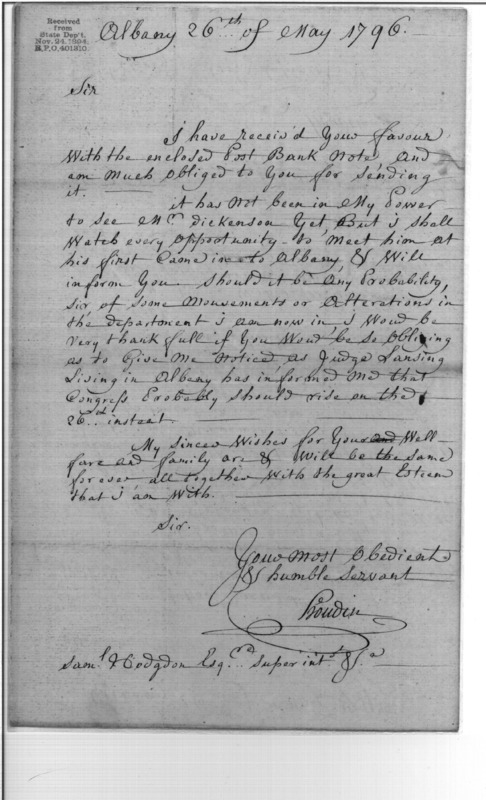 Received
from
State Dep't.
Nov. 24, 1894.
R.P.O. 401310.
Albany 26th of May 1796.
Sir
I have receiv'd Your favour
With the enclosed Post Bank Note, And
am Much obliged to You for sending
it.
it has Not been in My Power
to see Mr. Dickenson Yet, But i shall
Watch every opportunity to meet him at
his first Came in to Albany, & Will
inform You. should it be Any Probability,
sir, of some Mouvements or Alterations in
the department i am now in, i Woud be
Very thankfull if You Woud be so obliging
as to Give Me Noticed as Judge Lansing
Living in Albany has informed Me that
Congress Probably should rise on the
26th instant.
My sincer Wishes for Your and Well
fare and family are & Will be the same
for ever all together With the great Esteem
that i am With.
Sir.
Your Most Obedient
& humble servant
Houdin
Saml. Hodgdon Esqrd. super intt. &a